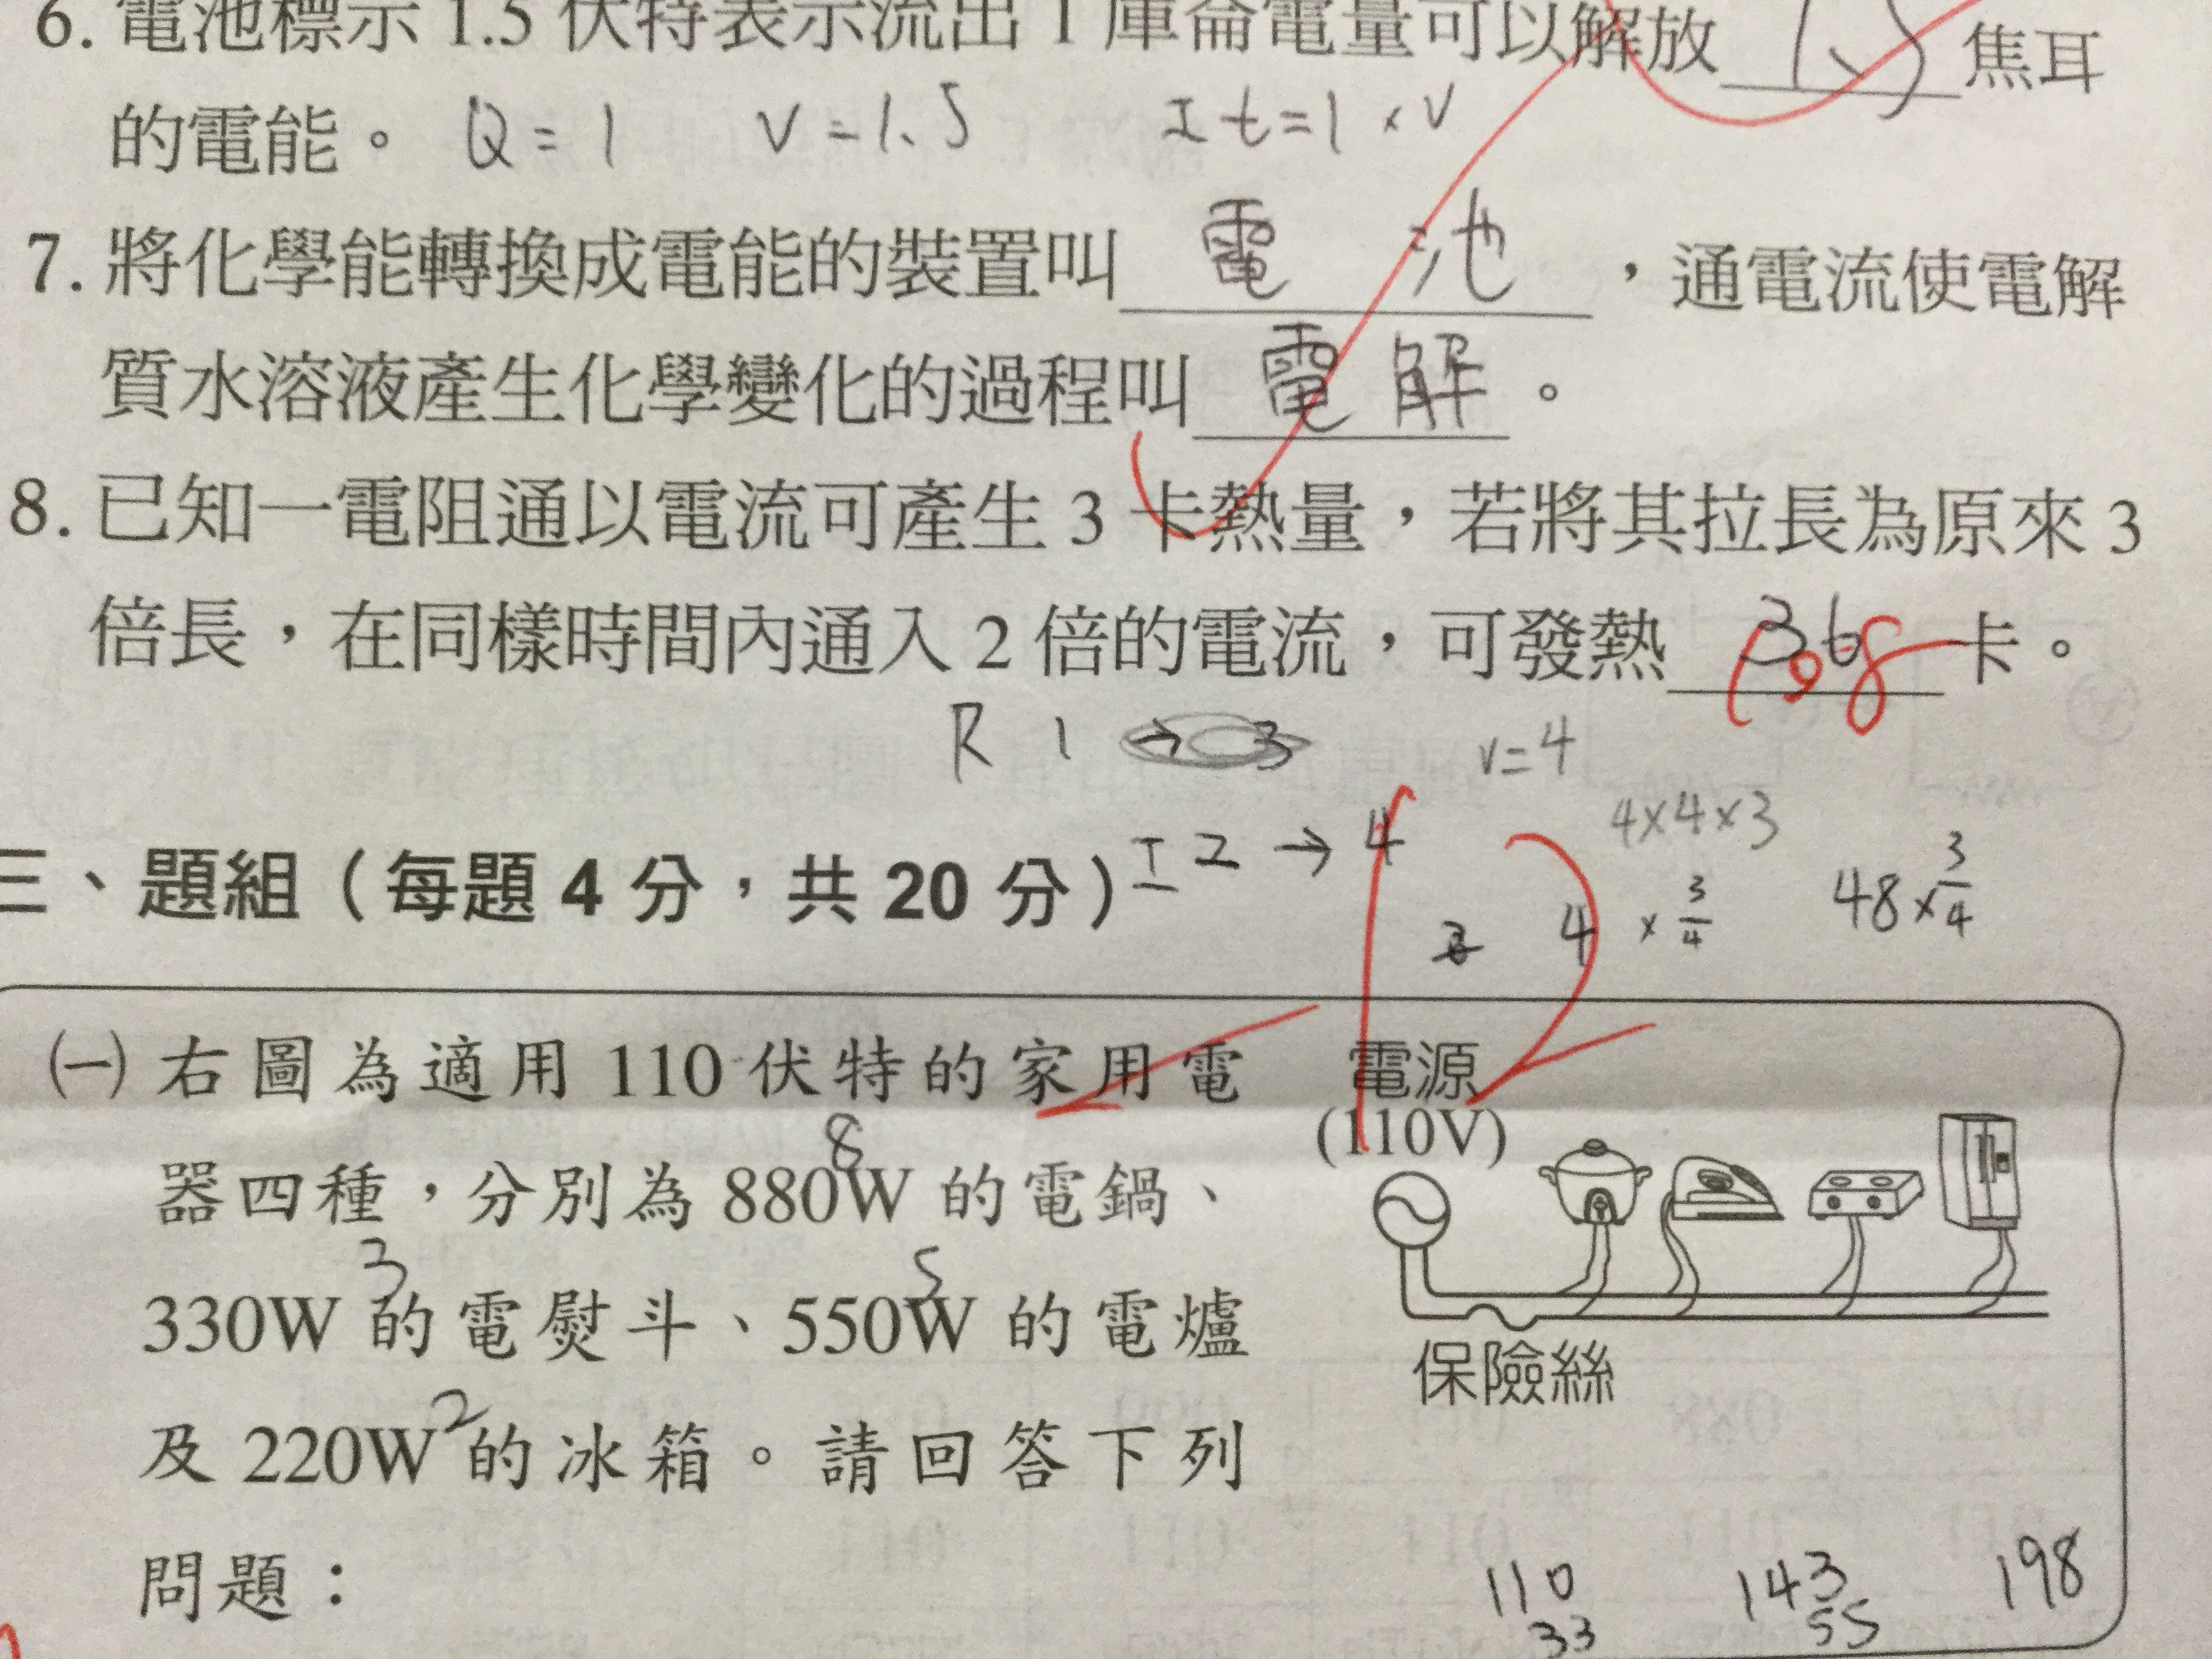 6. 電池標示 1.5 伏特表示流出 1 庫侖電量可以解放 1.5 焦耳
的電能。 Q = 1 V = 1.5 It = 1 × V
7. 將化學能轉換成電能的裝置叫 電池 ，通電流使電解
質水溶液產生化學變化的過程叫 電解 。
8. 已知一電阻通以電流可產生 3 卡熱量，若將其拉長為原來 3
倍長，在同樣時間內通入 2 倍的電流，可發熱 36 108 卡。
R 1 → 3 V=4
4×4×3
三、題組（每題 4 分，共 20 分） I 2 → 4
4 × 3/4 48 × 3/4
㈠ 右圖為適用 110 伏特的家用電
器四種，分別為 880W 的電鍋、
8
330W 的電熨斗、550W 的電爐
3 5
及 220W 的冰箱。請回答下列
2
問題：
電源
(110V)
保險絲
110 143 198
33 55